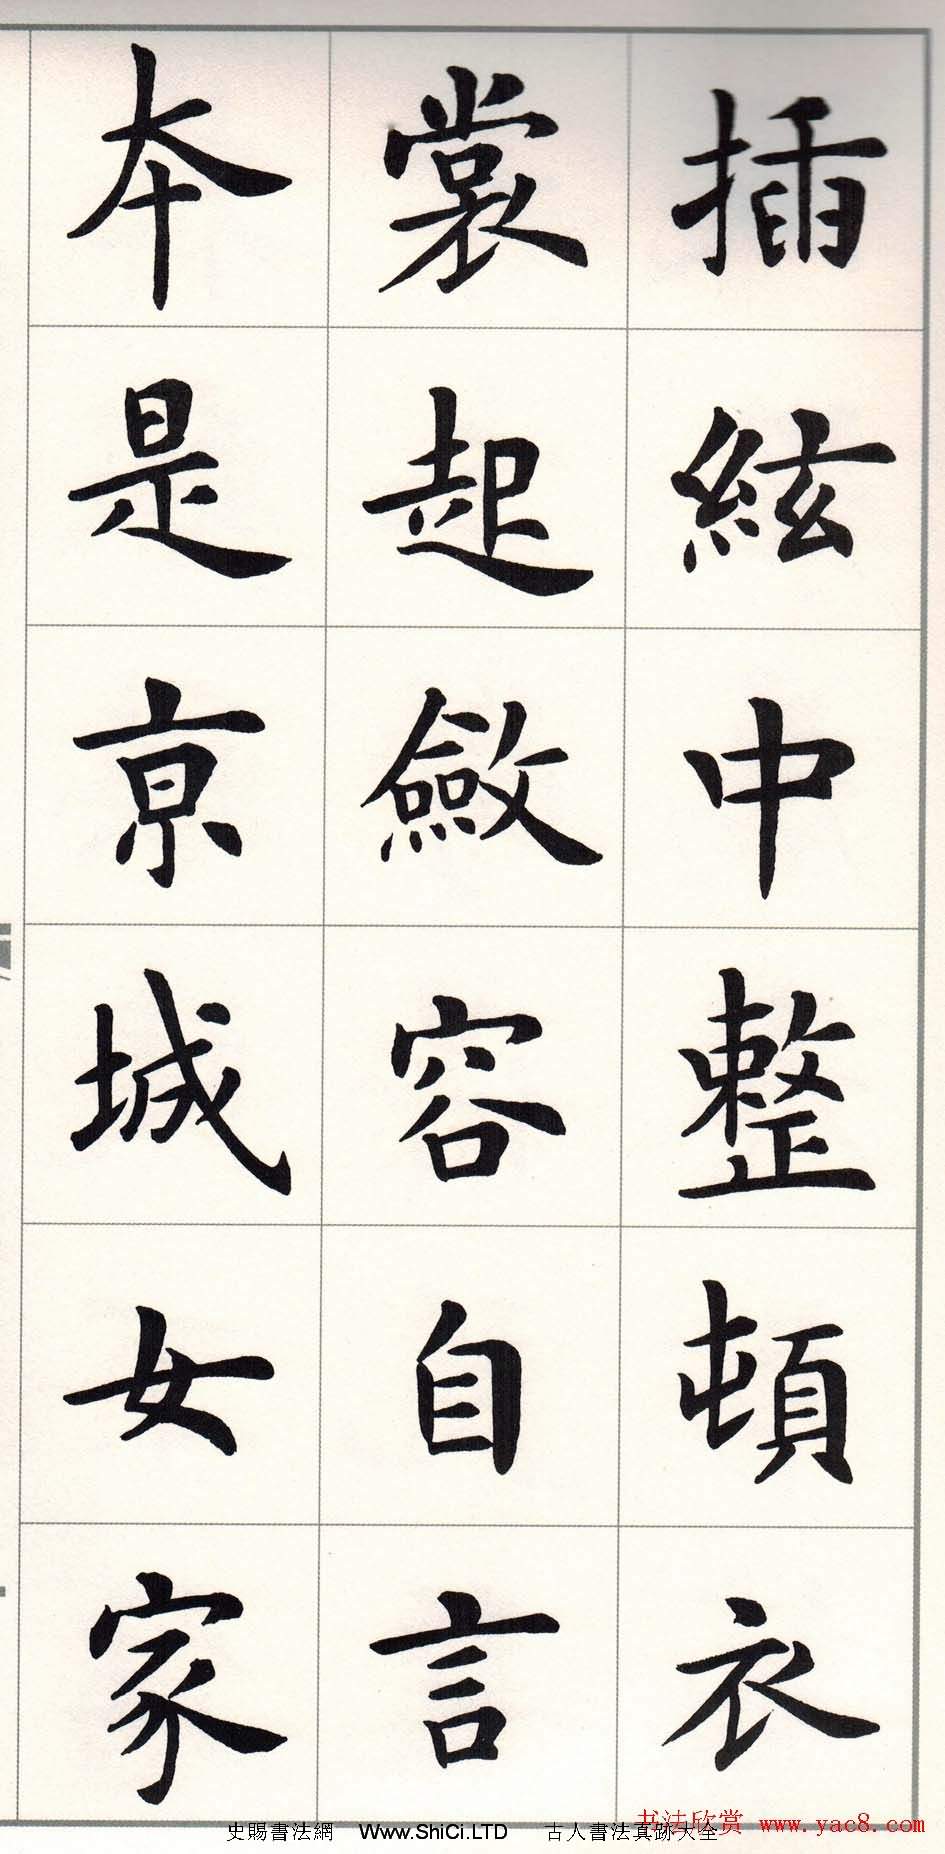 插絃中整頓衣
裳起斂容自言
本是京城女家
书法欣赏 www.yac8.com
史賜書法網 Www.ShiCi.LTD 古人書法真跡大全